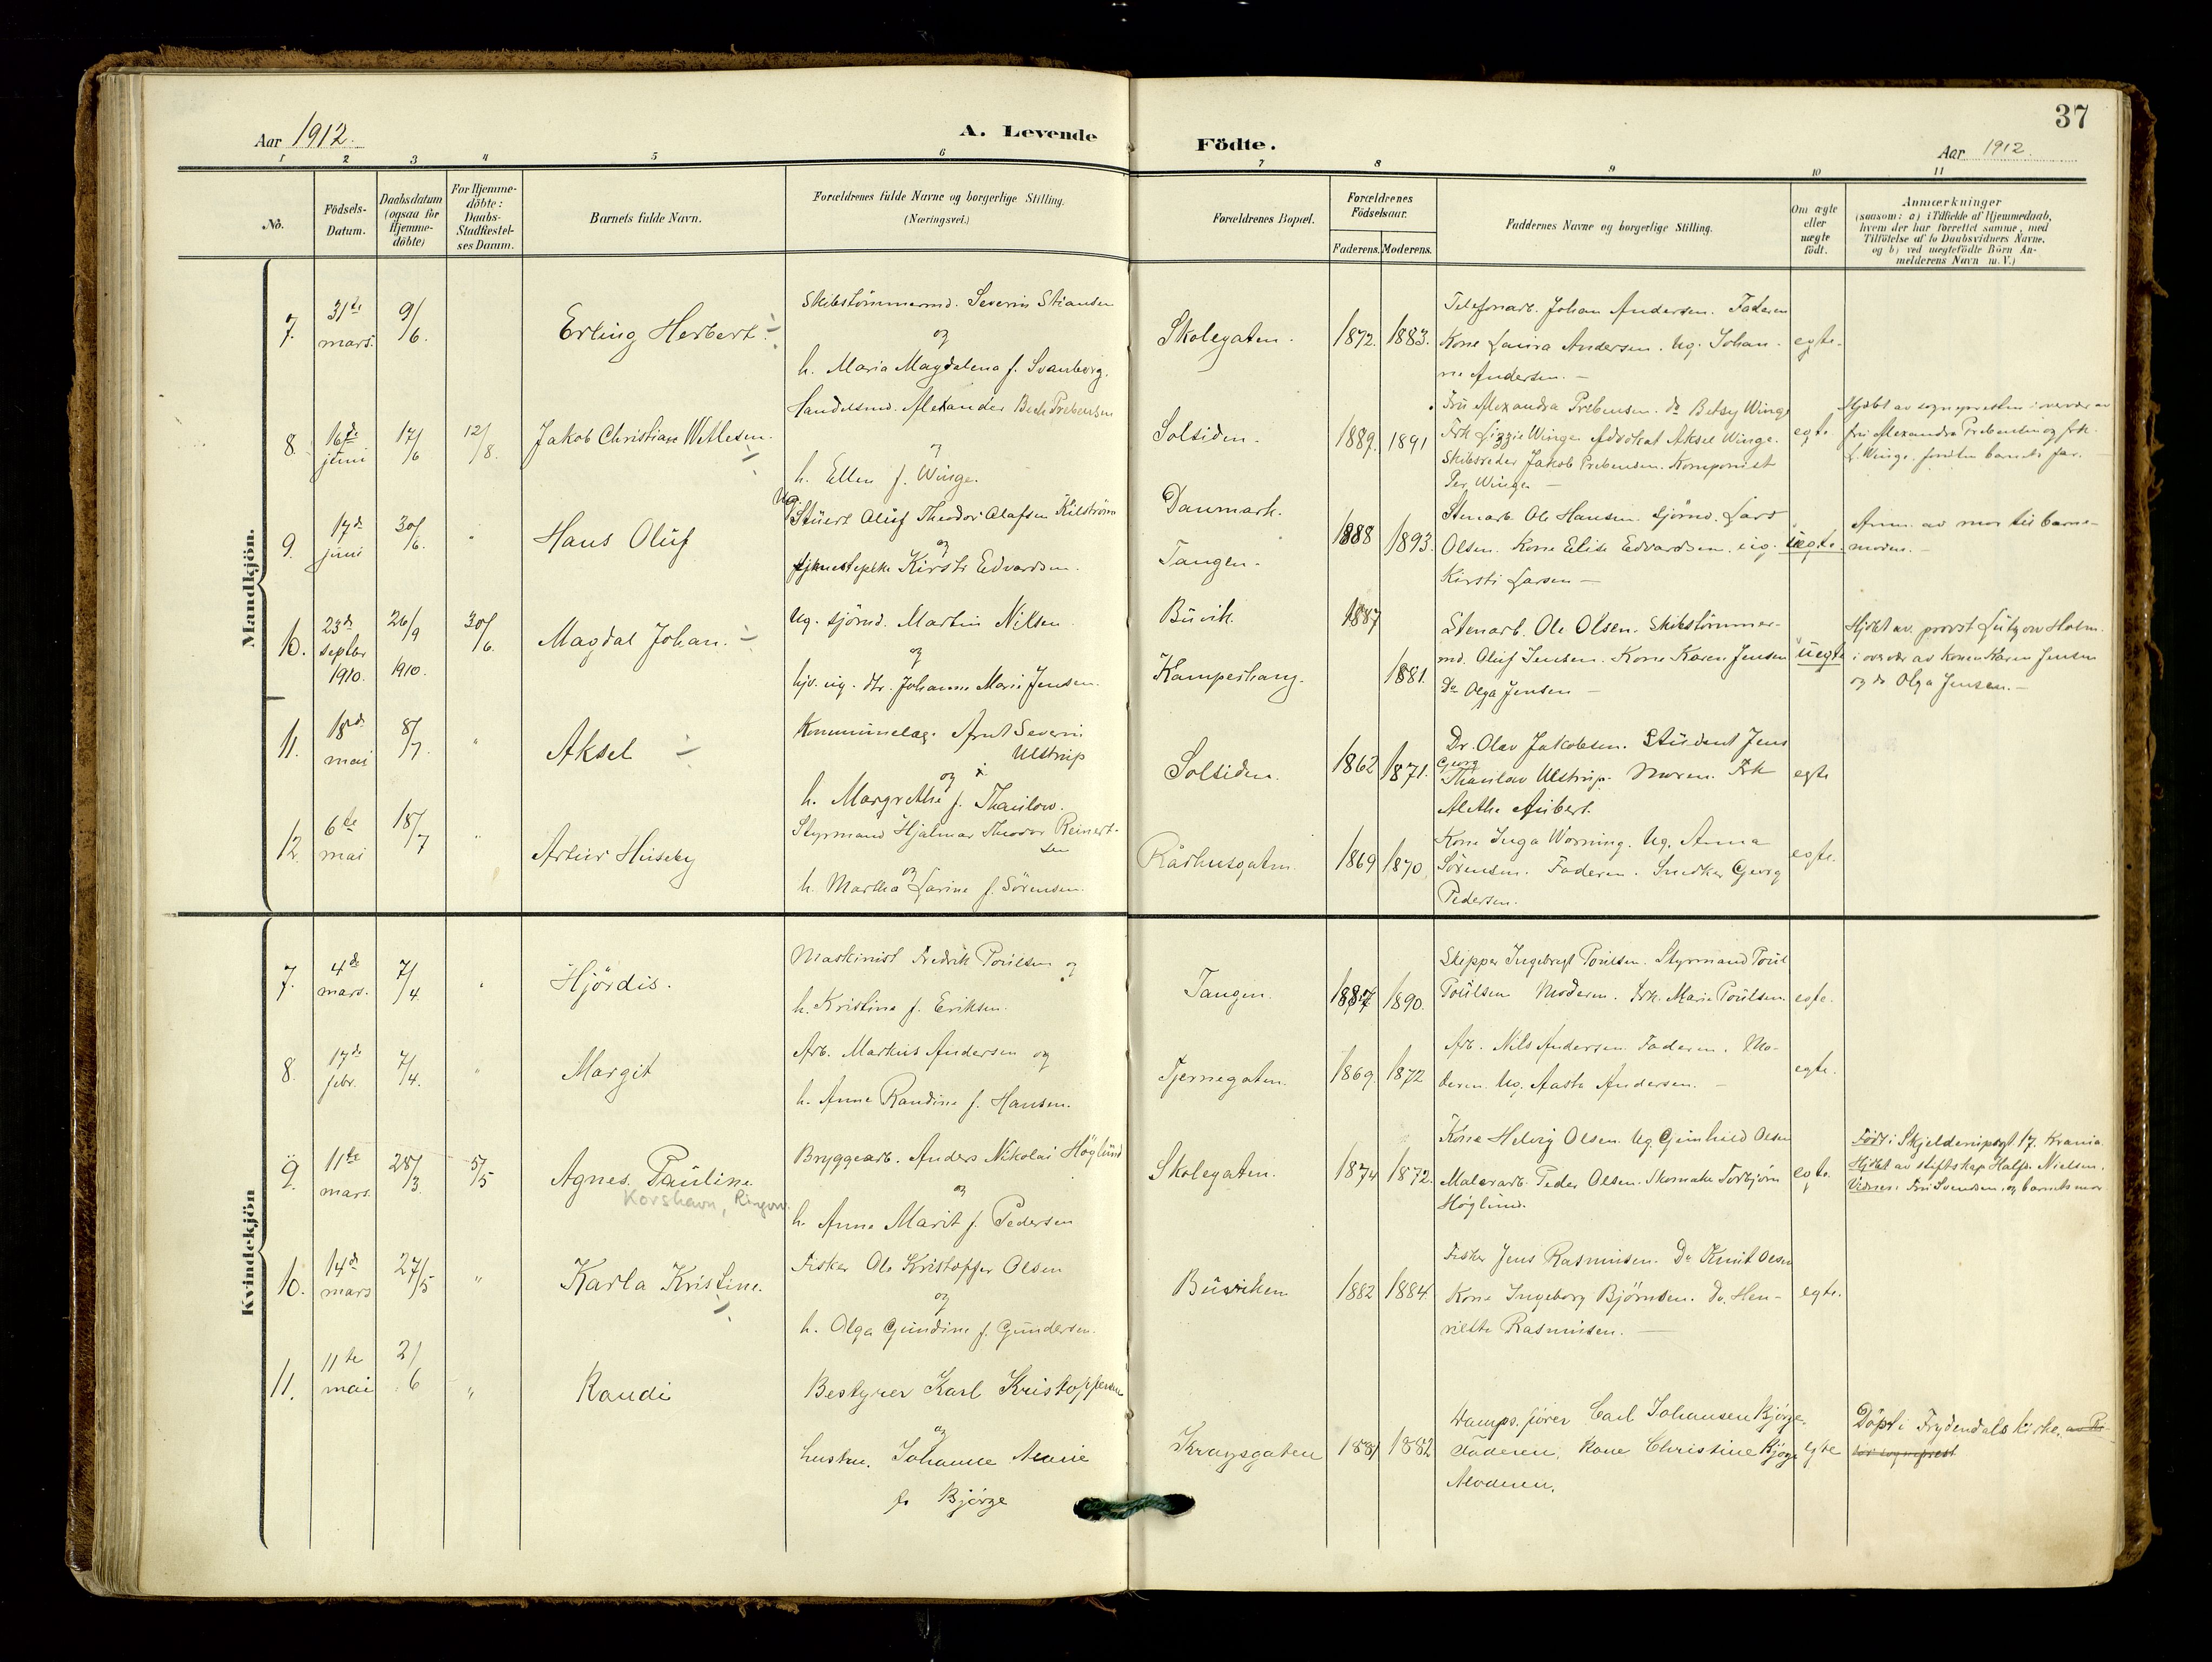 37
Aar 1912.
A. Levende Födte.
Aar 1912.
1 2 3 4 5 6 7 8 9 10 11
No.
Födsels-Datum.
Daabsdatum (ogsaa for Hjemme-döbte)
For Hjemme-döbte: Daabs-Stadfæstel-ses Datum.
Barnets fulde Navn.
Forældrenes fulde Navne og borgerlige Stilling. (Næringsvei.)
Forældrenes Bopæl.
Forældrenes Födselsaar.
Faderens. Moderens.
Faddernes Navne og borgerlige Stilling.
Om ægte eller uægte födt.
Anmærkninger
(saasom: a) i Tilfælde af Hjemmedaab,
hvem der har forrettet samme, med
Tilföielse af to Daabsvidners Navne.
og b) ved uægtefödte Börn An-
melderens Navn m. V.)
Mandkjön.
7. 31te mars. 9/6. Erling Herbert.
Skibstömmermd. Severin Stiansen
og
h. Maria Magdalena f. Svanberg.
Skolegaten. 1872. 1883.
Telefonarb. Johan Andersen. Faderen
Kone Laura Andersen. Ug. Johan-
ne Andersen. —
egte.
8. 16de juni 17/6 12/8. Jakob Christian Wetlesen.
Handelsmd. Alexander Bech Prebensen
og
h. Ellen f. Winge.
Solsiden. 1889. 1891
Fru Alexandra Prebensen. do Betsy Winge
Frk Lizzie Winge. Advokat Aksel Winge.
Skibsreder Jakob Prebensen. Komponist
Per Winge —
egte
Hjdöbt av sognepresten i overvær av
fru Alexandra Prebensen og frk.
L. Winge, foruten barnets far.
9. 17de juni 30/6. " Hans Oluf
Ug. Stuert Oluf Theodor Olafsen Kilström
og
tjenestepike Kirsti Edvardsen.
Danmark.
Tangen. 1888 1893.
Stenarb. Ole Hansen. Sjömd. Lars
Olsen. Kone Elise Edvardsen. ug.
Kirsti Larsen —
uegte.
Anm. av mor til barne-
moren. —
10. 23de septbr 1910. 26/9 1910. 30/6. Magdal Johan.
Ug. sjömd. Martin Nilsen
og
hjv. ug. dtr. Johanne Marie Jensen.
Buvik. 1887
Kamperhaug. 1881.
Stenarb. Ole Olsen. Skibstömmer-
md. Oluf Jensen. Kone Karen Jensen
Do Olga Jensen —
uegte
Hjdöbt av provst Lutzow Holm.
i overvær av konen Karen Jensen
og do Olga Jensen. —
11. 18de mai 8/7. " Aksel
Kommunelæg. Arnt Severin
Ulstrup
og
h. Margrethe f. Thaulow.
Solsiden. 1862 1871.
Dr. Olav Jakobsen. Student Jens
Georg
Thaulow Ulstrup. Moren. Frk
Alethe Aubert.
egte
12. 6te mai 18/7 " Artur Huseby
Styrmand Hjalmar Theodor Reinert-
sen
og
h. Martha Larine f. Sörensen.
Rådhusgaten. 1869 1870.
Kone Inga Worning. Ug. Anna
Sörensen. Faderen. Snedker Georg
Pedersen.
egte.
Kvindekjön
7. 4de mars. 7/4. " Hjördis.
Maskinist Fredrik Poulsen og
h. Kristine f. Eriksen.
Tangen. 1887 1890.
Skipper Ingebregt Poulsen. Styrmand Poul
Poulsen Moderen. Frk. Marie Poulsen.
egte.
8. 17de febr. 7/4. " Margit
Arb. Markus Andersen og
h. Anne Randine f. Hansen.
Tjernegaten. 1869. 1872
Arb. Nils Andersen. Faderen. Mo-
deren. Ug. Aaste Andersen. —
egte.
9. 11te mars. 28/3. 5/5 Agnes. Pauline.
Korshavn, Ringow.
Bryggearb. Anders Nikolai Höglund
og
h. Anne Marit f. Pedersen
Skolegaten. 1874 1872.
Kone Helvig Olsen. Ug Gunhild Olsen
Malerarb. Peder Olsen. Skomaker Torbjörn
Höglund.
egte.
Födt i Skjelderupsgt. 17. Krania.
Hjdöbt av stiftskap. Halfd. Nielsen.
Vidner: Fru Svendsen, og barnets mor
10. 14de mars 27/5 " Karla Kristine.
Fisker Ole Kristoffer Olsen
og
h. Olga Gundine f. Gundersen.
Buviken 1882 1884.
Fisker Jens Rasmussen. Do Knut Olsen
Kone Ingeborg Björnsen. Do. Hen-
riette Rasmussen. —
egte.
11. 11te mai 2/6 " Randi
Bestyrer Karl Kristoffersen
og
hustru. Johanne Marie
f. Björge
Kragsgaten 1881 1882
Damps. förer Carl Johansen Björge.
Faderen, Kone Christine Björge
Moderen.
egte
Döpt i Frydendals kirke.